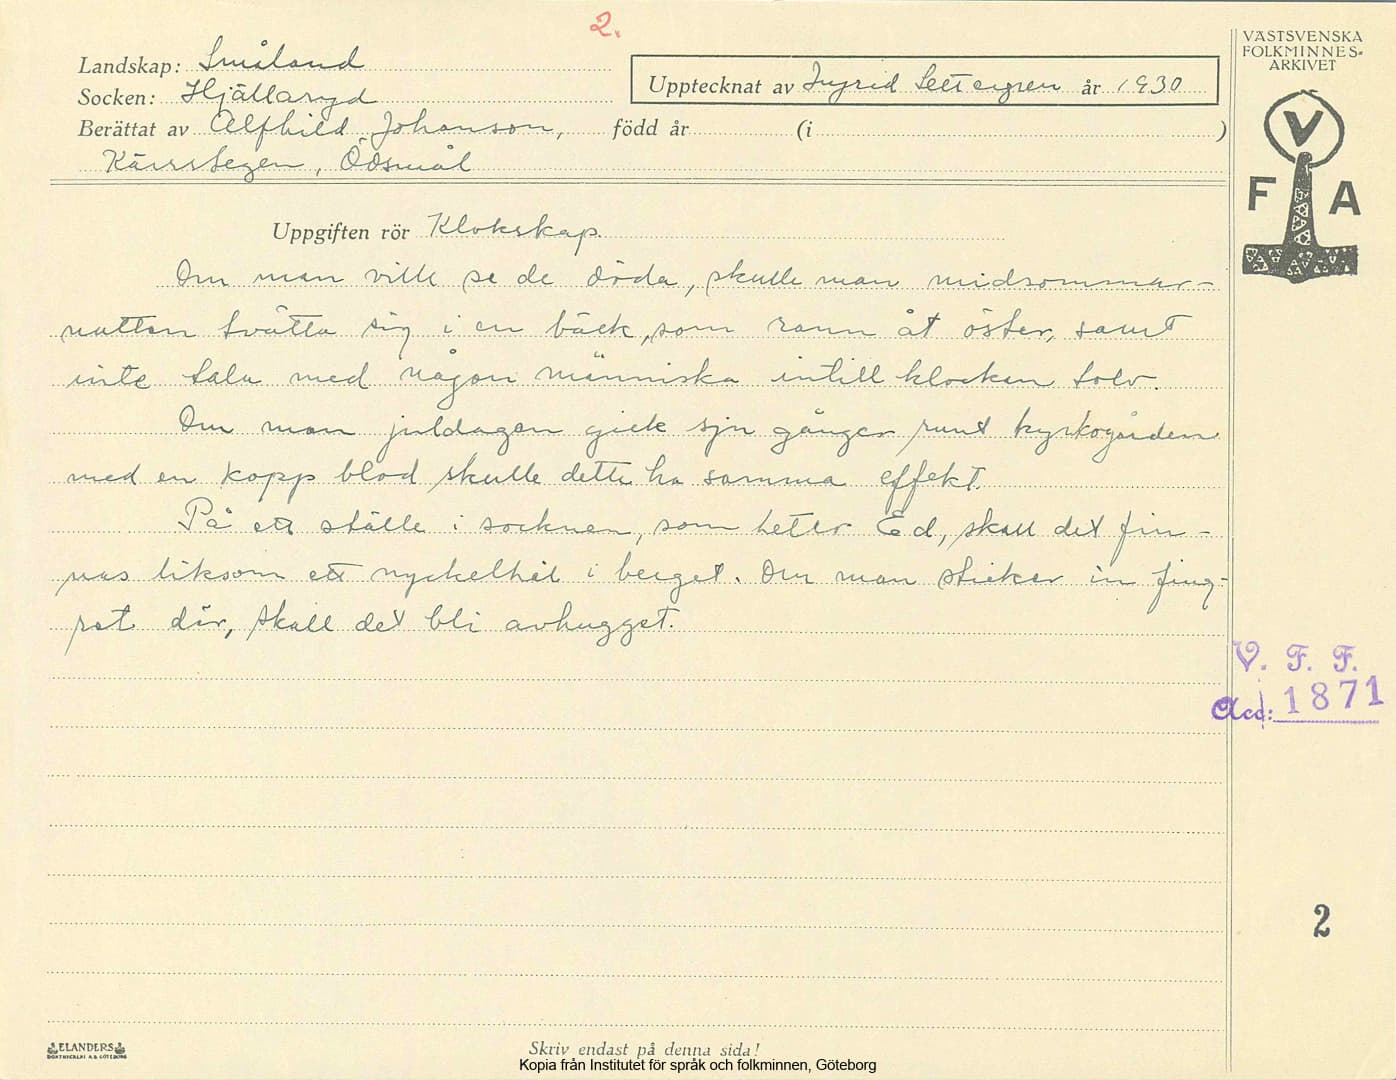 2.
Landskap: Småland
Socken: Hjälleryd
Upptecknat av Ingrid Settergren år 1930
Berättat av Alfhild Johanson, född år (i )
Kärrstegen, Ödsmål
VÄSTSVENSKA
FOLKMINNES-
ARKIVET
V
F A
Uppgiften rör Klokskap.
Om man ville se de döda, skulle man midsommar-
natten tvätta sig i en bäck, som rann åt öster, samt
inte tala med någon människa intill klockan tolv.
Om man juldagen gick sju gånger runt kyrkogården
med en kopp blod skulle detta ha samma effekt.
På ett ställe i socknen, som heter Ed, skall det fin-
nas liksom ett nyckelhål i berget. Om man sticker in fing-
ret där, skall det bli avhugget.
V. F. F.
Acc: 1871
2
ELANDERS
BOKTRYCKERI A.B. GÖTEBORG
Skriv endast på denna sida!
Kopia från Institutet för språk och folkminnen, Göteborg